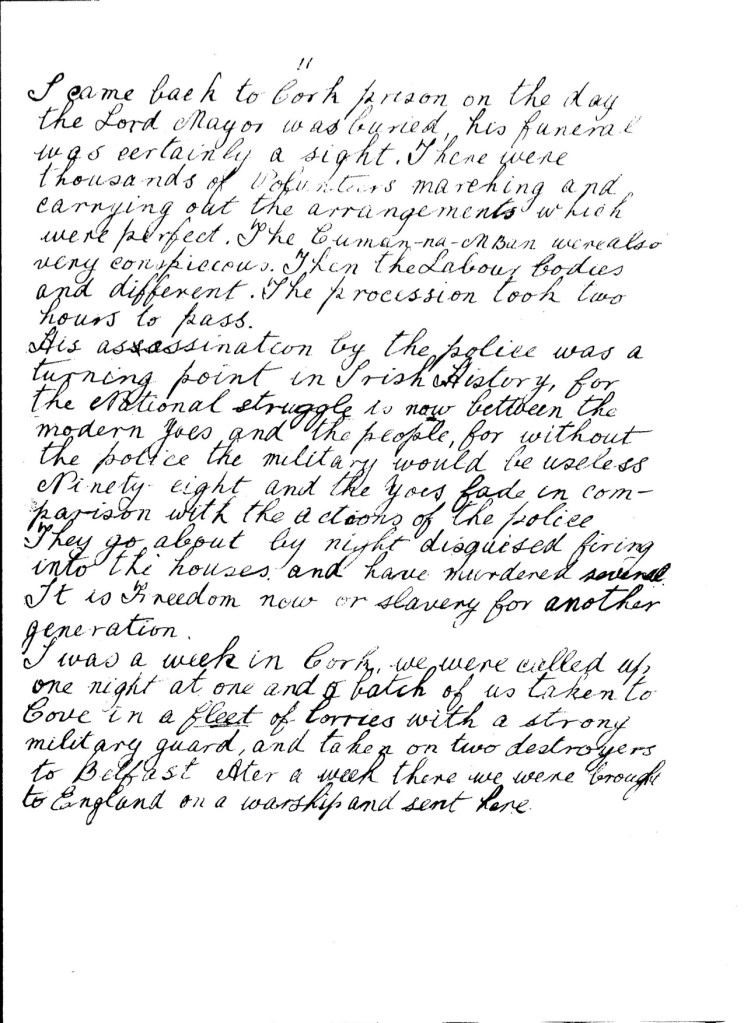 11
I came back to Cork prison on the day
the Lord Mayor was buried, his funeral
was certainly a sight. There were
thousands of Volunteers marching and
carrying out the arrangements which
were perfect. The Cuman-na-MBan were also
very conspiecious. Then the Labour bodies
and different. The procession took two
hours to pass.
His assassination by the police was a
turning point in Irish History, for
the National struggle is now between the
modern Yoes and the people, for without
the police the military would be useless
Ninety eight and the Yoes fade in com-
parison with the actions of the police
They go about by night disguised firing
into the houses and have murdered several.
It is Freedom now or slavery for another
generation.
I was a week in Cork, we were called up
one night at one and a batch of us taken to
Cove in a fleet of lorries with a strong
military guard, and taken on two destroyers
to Belfast Ater a week there we were brough
to England on a warship and sent here